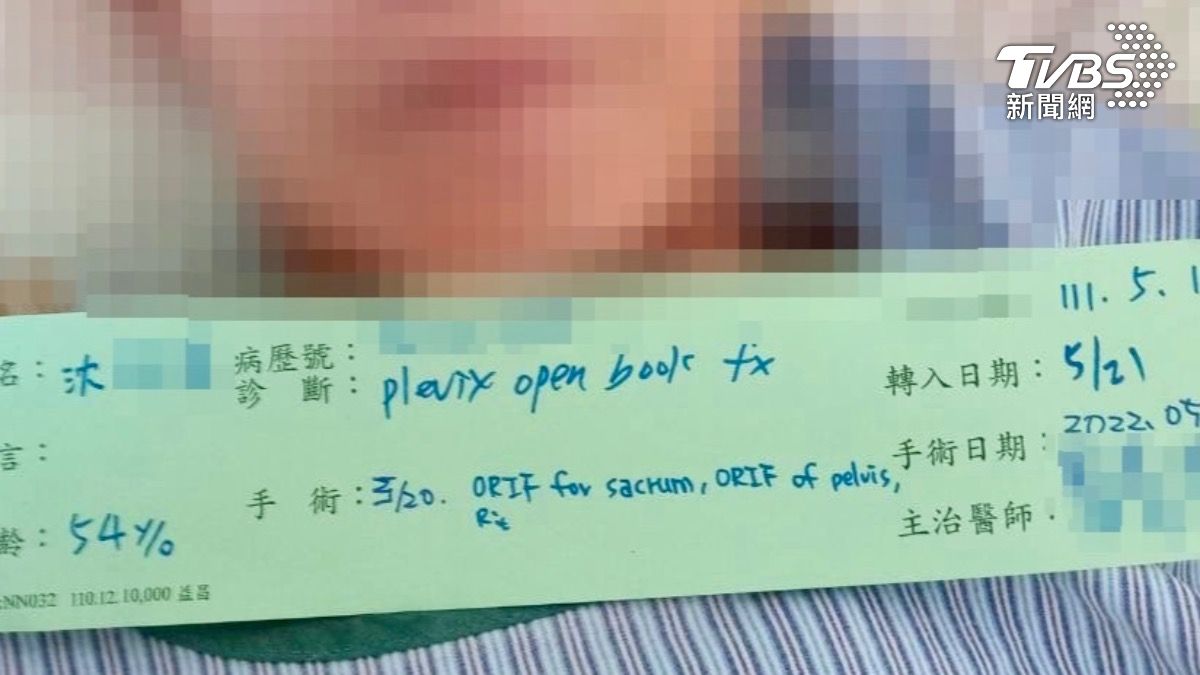 TVBS
新聞網
111. 5. 1
名：沐
病歷號：
診 斷：plevix open book fx
轉入日期：5/21
言：
手術日期：2022.05
手 術：5/20. ORIF for sacrum, ORIF of pelvis, Rit
主治醫師：
齡：54y/o
NN032 110.12.10,000 益昌